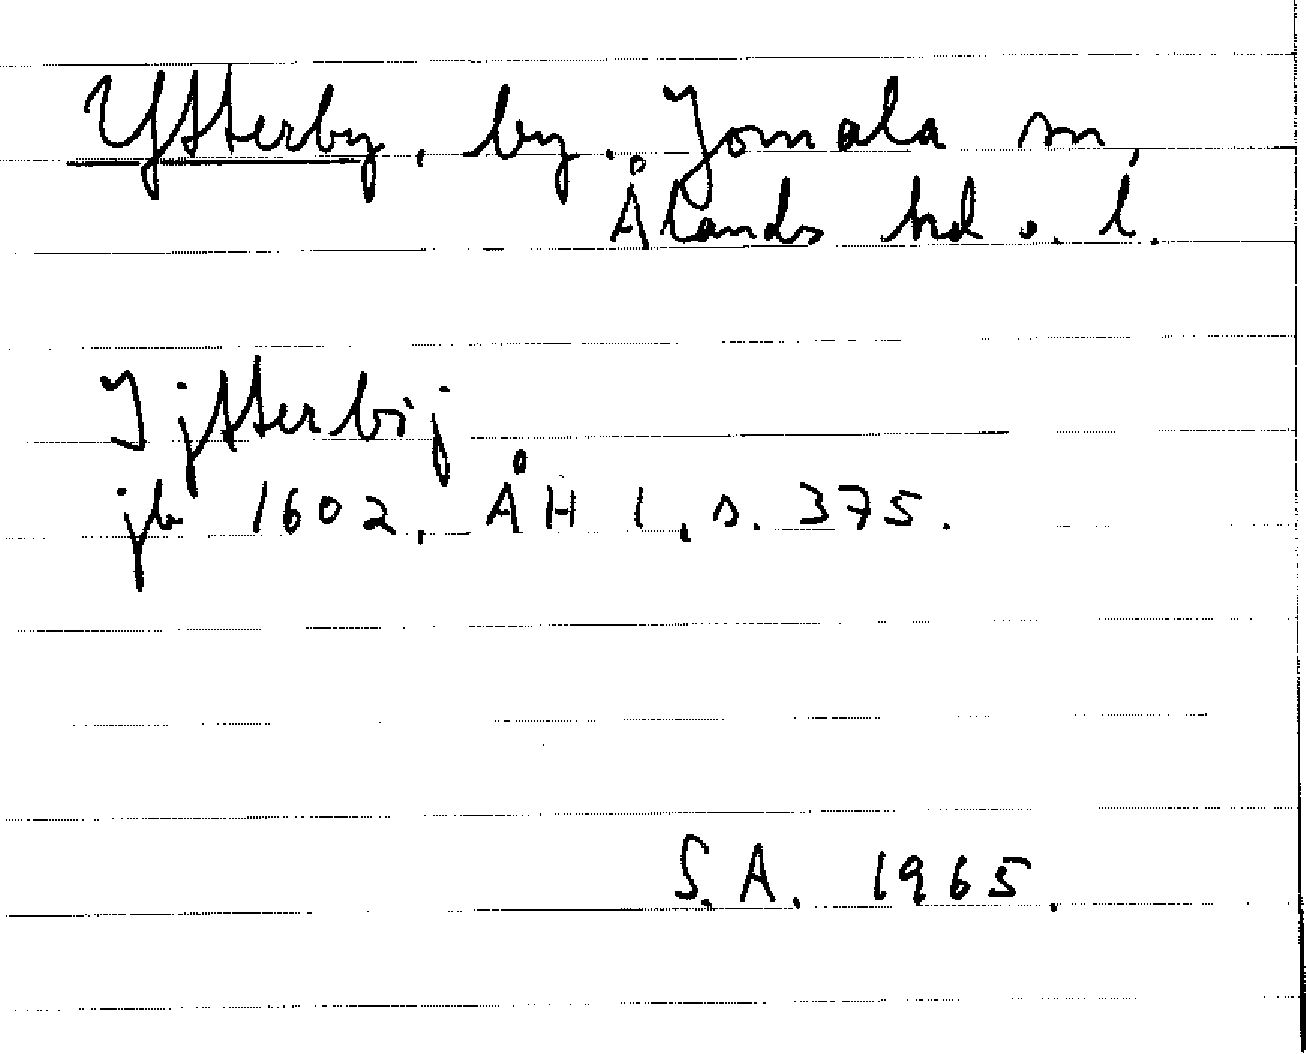 Ytterby, by. Jomala sn,
Ålands hd o. l.
Ijtterbij
jb 1602, ÅH 1, s. 375.
S.A. 1965.